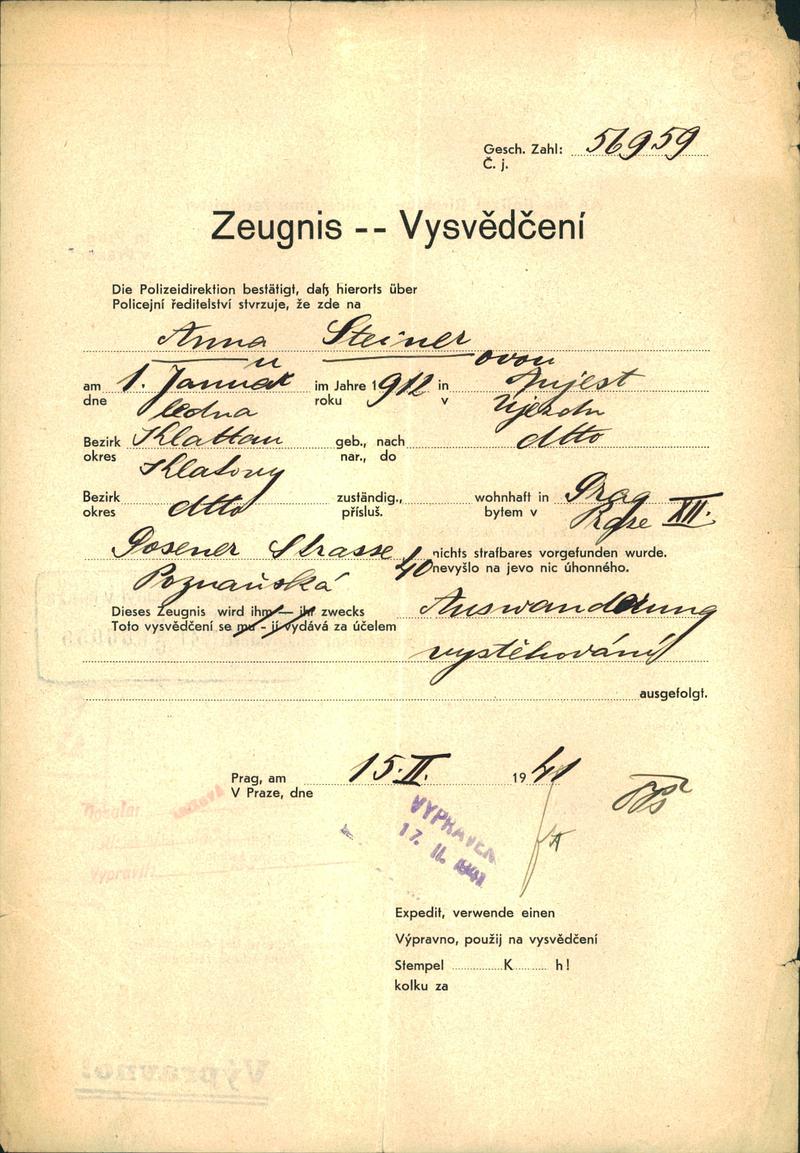 Gesch. Zahl: 56959
Č. j.
Zeugnis -- Vysvědčení
Die Polizeidirektion bestätigt, daß hierorts über
Policejní ředitelství stvrzuje, že zde na
Anna Steiner
ovou
am 1. Januar im Jahre 1912 in Aujest
dne ledna roku v Újezdu
Bezirk Klattau geb., nach dtto
okres Klatovy nar., do
Bezirk dtto zuständig., wohnhaft in Prag
okres přísluš. bytem v Praze XII.
Posener Strasse 40 nichts strafbares vorgefunden wurde.
Poznaňská nevyšlo na jevo nic úhonného.
Dieses Zeugnis wird ihm — ihr zwecks Auswanderung
Toto vysvědčení se mu - jí vydává za účelem
vystěhování
ausgefolgt.
Prag, am 15.II. 1941
V Praze, dne
VYPRAVEN
17. II. 1941
Expedit, verwende einen
Výpravno, použij na vysvědčení
Stempel K h!
kolku za
Výpravno!